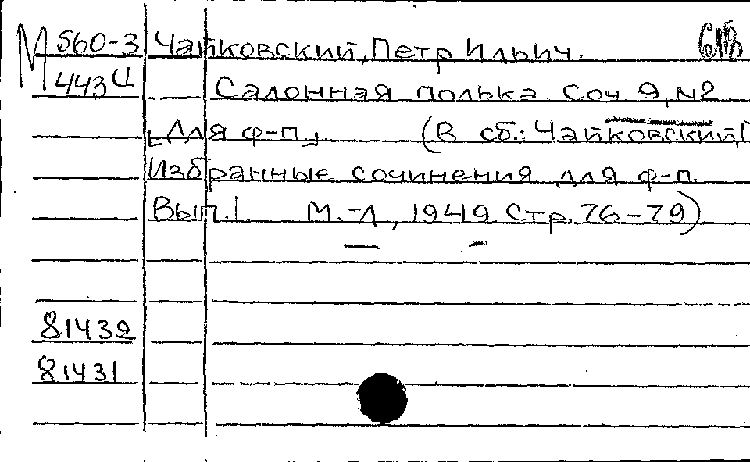 М 560-3 Чайковский, Петр Ильич.
443 Ч Салонная полька Соч 9, №2
[Для ф-п.] (В сб.: Чайковский, П
Избранные сочинения для ф-п.
Вып. 1 М.-Л, 1949 Стр. 76-79)
81432
81431